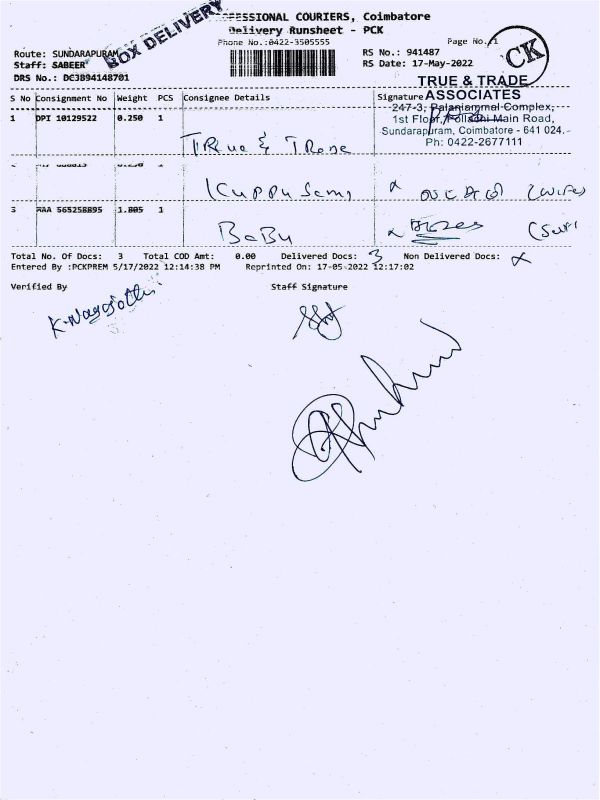 PROFESSIONAL COURIERS, Coimbatore
Delivery Runsheet - PCK
Phone No.:0422-3505555
Page No.:1
BOX DELIVERY
CK
Route: SUNDARAPURAM
Staff: SABEER
DRS No.: DC3B94148701
RS No.: 941487
RS Date: 17-May-2022
TRUE & TRADE
ASSOCIATES
247-3, Palaniammal Complex,
1st Floor, Pollachi Main Road,
Sundarapuram, Coimbatore - 641 024.
Ph: 0422-2677111
S No Consignment No Weight PCS Consignee Details Signature
1 DPI 10129522 0.250 1
TRue & TRade
Kuppu Samy
3 AAA 565258895 1.805 1
BaBu
Total No. Of Docs: 3 Total COD Amt: 0.00 Delivered Docs: 3 Non Delivered Docs: x
Entered By :PCKPREM 5/17/2022 12:14:38 PM Reprinted On: 17-05-2022 12:17:02
Verified By Staff Signature